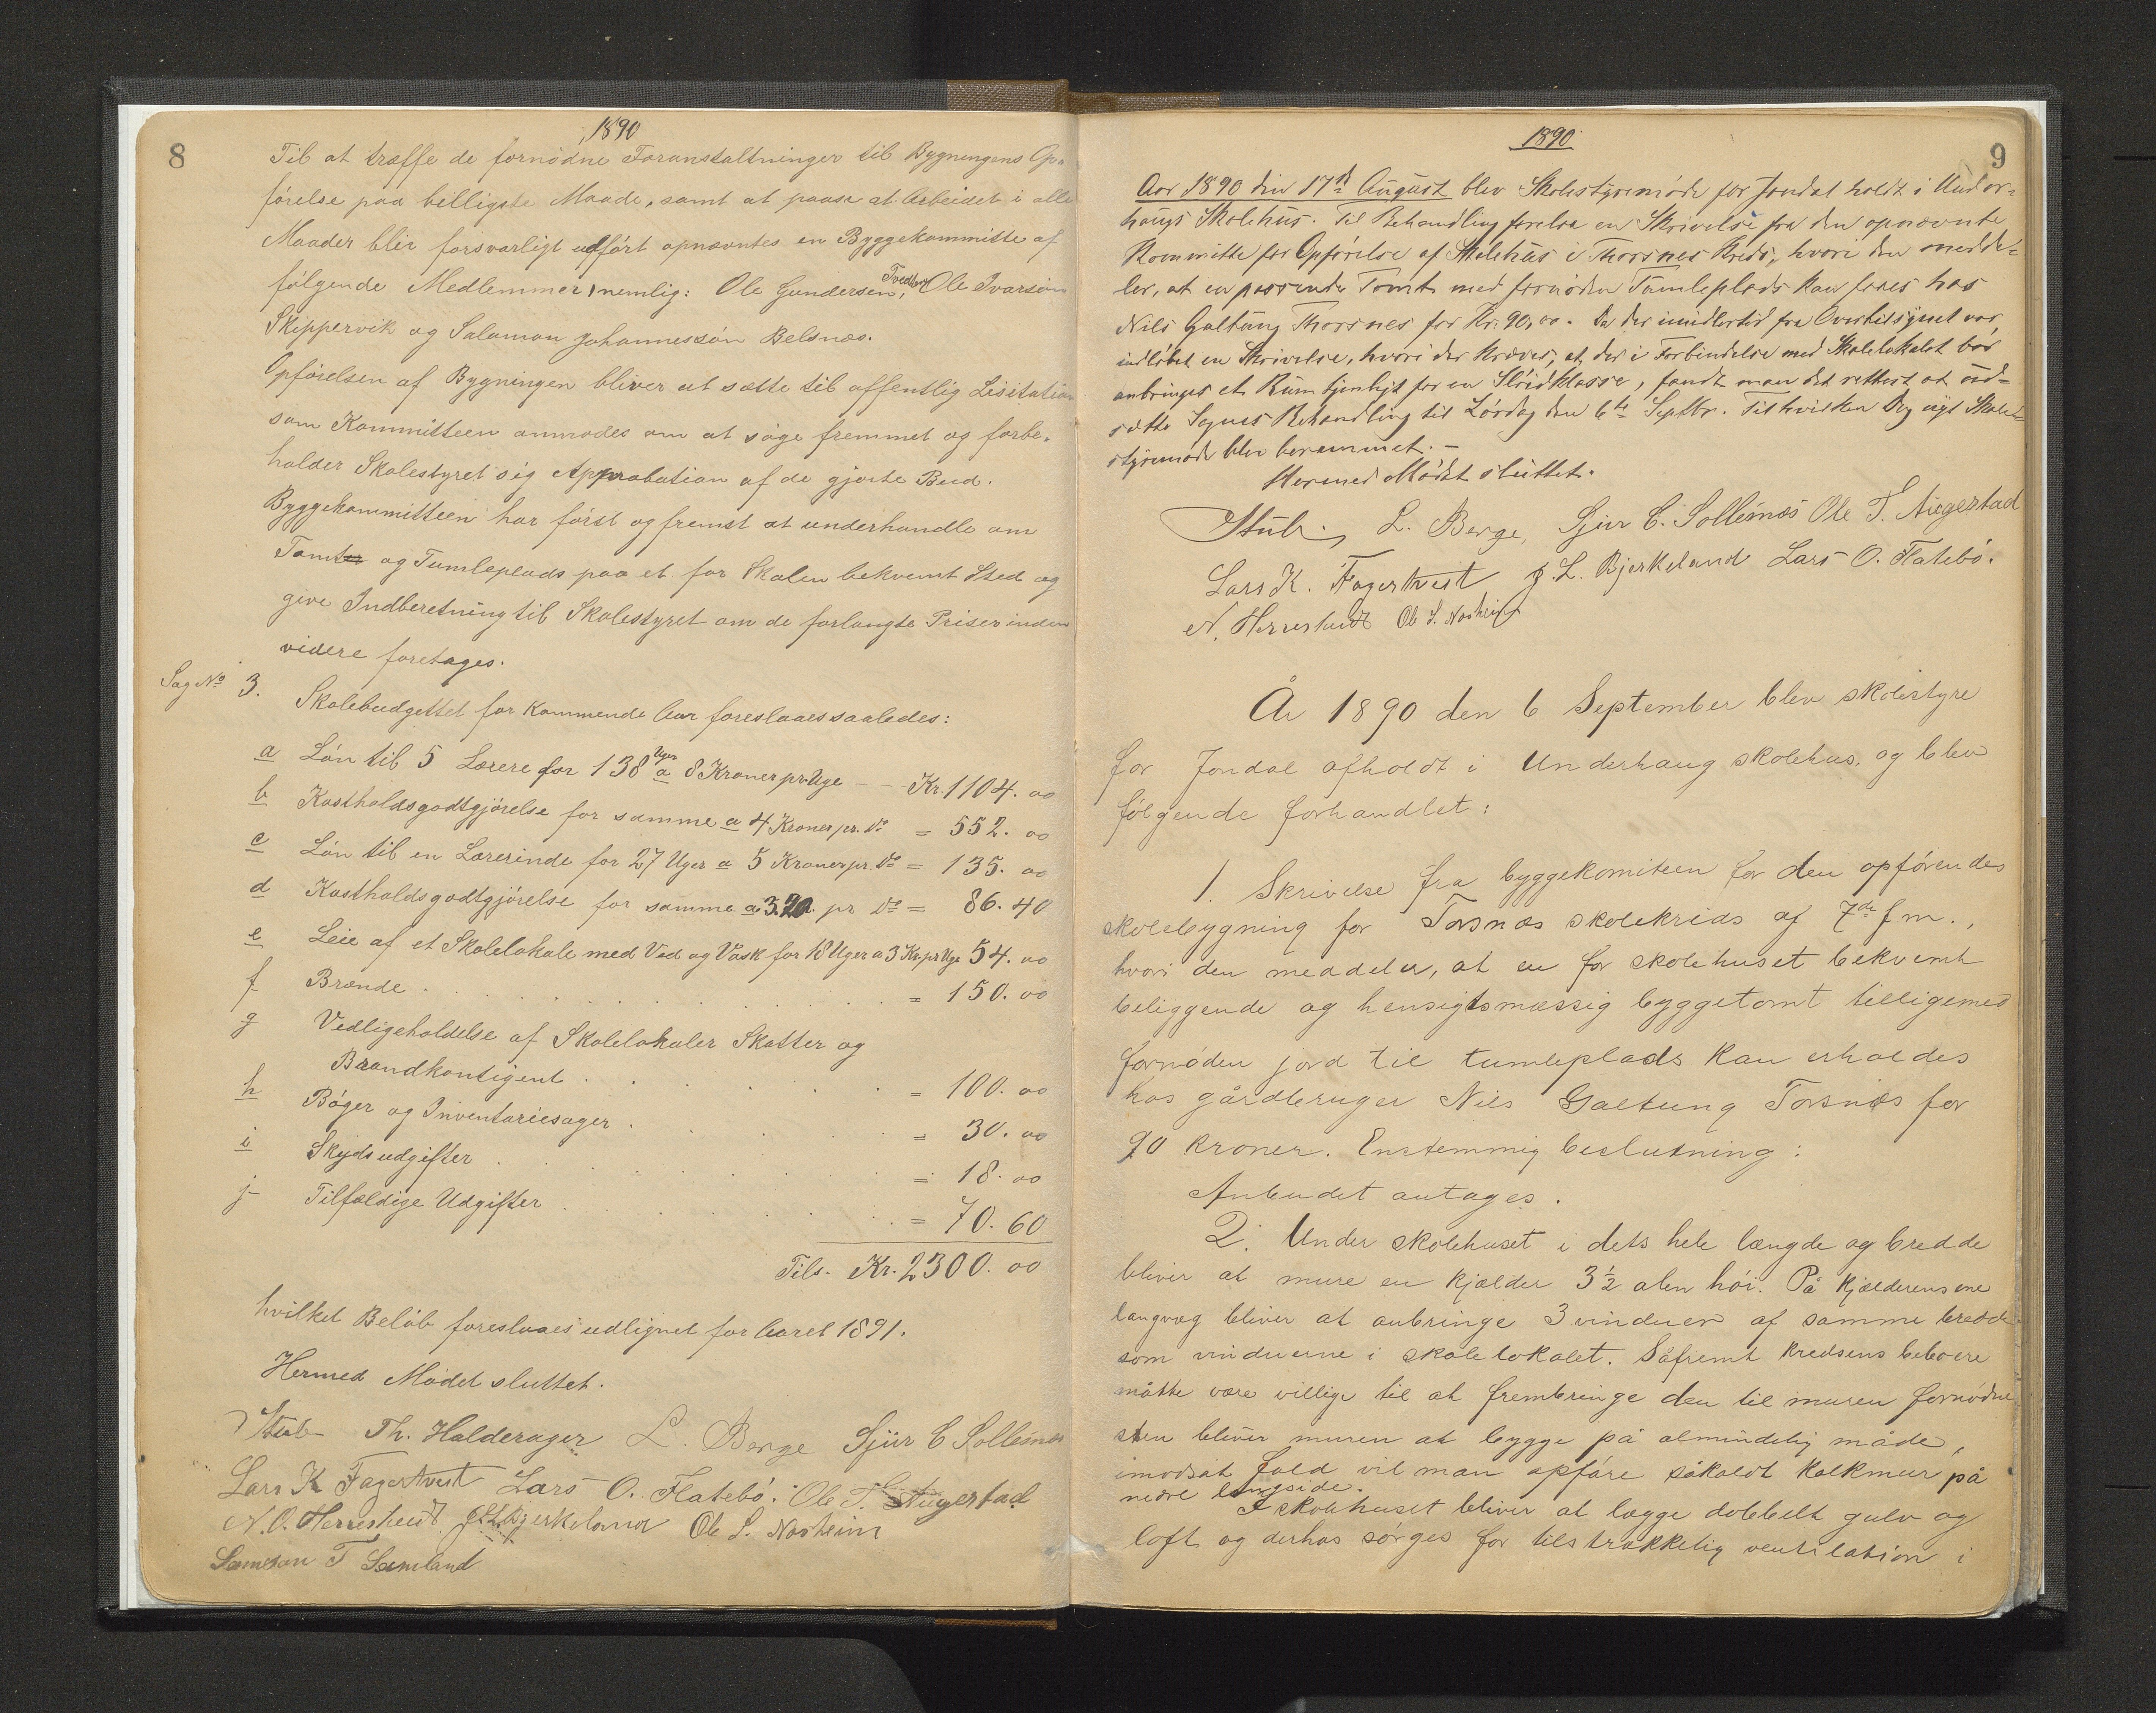 8
1890
Til at træffe de fornødne Foranstaltninger til Bygningens Op-
førelse paa billigste Maade, samt at paase at Arbeidet i alle
Maader blir forsvarligt udført opnævntes en Byggekommitte af
følgende Medlemmer, nemlig: Ole Gundersen Tvedten, Ole Ivarsøn
Skippervik og Salamon Johannessøn Belsnæs.
Opførelsen af Bygningen bliver at sætte til offentlig Lisitation
som Kommitteen anmodes om at søge fremmet og forbe-
holder Skolestyret sig Approbation af de gjorte Bud.
Byggekommitteen har først og fremst at underhandle om
Tomt og Tumleplads paa et for Skolen bekvemt Sted og
give Indberetning til Skolestyret om de forlangte Priser inden
videre foretages.
Sag No 3. Skolebudgettet for kommende Aar foreslaaes saaledes:
a Løn til 5 Lærere for 138 Uger a 8 Kroner pr Uge - - Kr. 1104. 00
b Kostholdsgodtgjørelse for samme a 4 Kroner pr. do = 552. 00
c Løn til en Lærerinde for 27 Uger a 5 Kroner pr. do = 135. 00
d Kostholdsgodtgjørelse for samme a 3.20. pr do = 86. 40
e Leie af et Skolelokale med Ved og Vask for 18 Uger a 3 Kr. pr Uge 54. 00
f Brænde . . . = 150. 00
g Vedligeholdelse af Skolelokaler Skatter og
Brandkontigent . . . = 100. 00
h Bøger og Inventariesager . . . = 30. 00
i Skydsudgifter . . . = 18. 00
j Tilfældige Udgifter . . . = 70. 60
Tils. Kr. 2300. 00
hvilket Beløb foreslaaes udlignet for Aaret 1891.
Hermed Mødet sluttet.
Stub Th. Halderager L. Berge Sjur C Sollesnes
Lars K Fagertveit Lars O. Flatebø. Ole T. Augestad
N. O. Herrestveit J. L. Bjerkeland Ole S. Nasheim
Samson T Samland
1890
9
Aar 1890 den 17de August blev Skolestyremøde for Jondal holdt i Under-
haugs Skolehus. Til Behandling forelaa en Skrivelse fra den opnævnte
Kommitte for Opførelse af Skolehus i Thorsnes Kreds, hvori den medde-
ler, at en passende Tomt med fornøden Tumleplads kan faaes hos
Nils Galtung Thorsnes for Kr. 90,00. Da der imidlertid fra Overtilsynet var
indløbet en Skrivelse, hvori der kræves, at der i Forbindelse med Skolelokalet bør
anbringes et Rum tjenligt for en Sløidklasse, fandt man det rettest at ud-
sætte Sagnes Behandling til Lørdag den 6te Septbr. Til hvilken Dag nyt Skole-
styremøde blev berammet. -
Hermed Mødet sluttet.
Stub. L. Berge, Sjur C. Sollesnes Ole T. Augestad
Lars K. Fagertveit J. L. Bjerkeland Lars O. Flatebø.
N. Herrestveit Ole S. Nasheim
År 1890 den 6 September blev skolestyre
for Jondal afholdt i Underhaug skolehus. og blev
følgende forhandlet:
1. Skrivelse fra byggekomiteen for den opførendes
skolebygning for Torsnæs skolekreds af 7de f.m.,
hvori den meddeler, at en for skolehuset bekvemt
beliggende og hensigtsmæssig byggetomt tilligemed
fornøden jord til tumleplads kan erholdes
hos gårdbruger Nils Galtung Torsnæs for
90 kroner. Enstemmig beslutning:
Anbudet antages.
2. Under skolehuset i dets hele længde og bredde
bliver at mure en kjælder 3 1/2 alen høi. På kjælderens ene
langvæg bliver at anbringe 3 vinduer af samme bredde
som vinduerne i skolelokalet. Såfremt kredsens beboere
måtte være villige til at frembringe den til muren fornødne
sten bliver muren at bygge på almindelig måde,
imodsat fald vil man opføre såkaldt kalkmur på
nedre langside.
I skolehuset bliver at lægge dobbelt gulv og
loft og derhos sørges for tilstrækkelig ventilation i